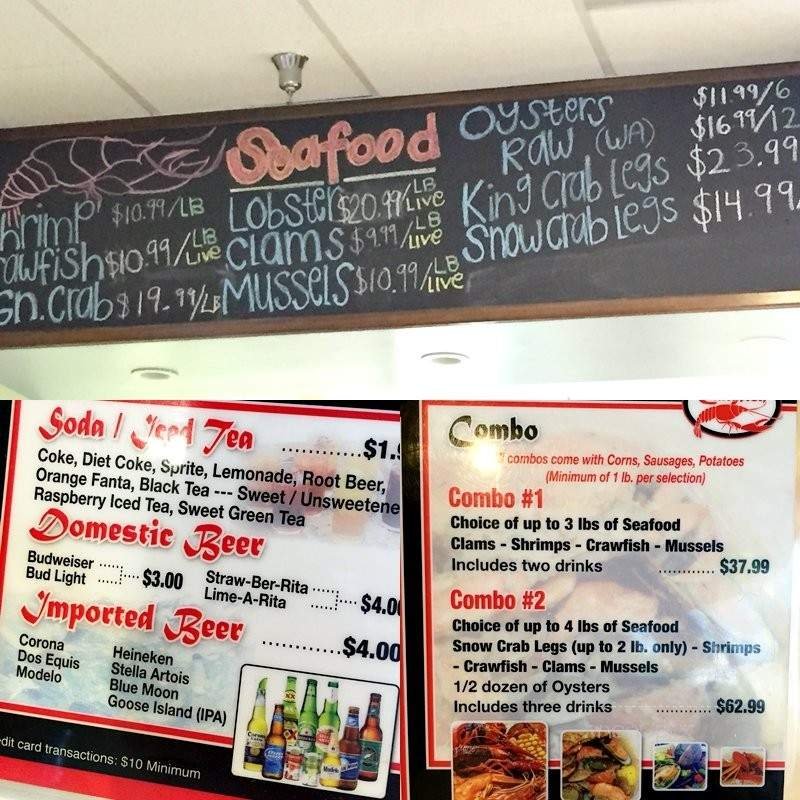 Seafood
hrimp $10.99/LB
awfish $10.99/LB Live
gn. Crab $19.99/LB
Lobster $20.99/LB Live
Clams $9.99/LB Live
Mussels $10.99/LB Live
Oysters $11.99/6
Raw (WA) $16.99/12
King Crab Legs $23.99
Snow Crab Legs $14.99/
Soda / Iced Tea ............. $1.
Coke, Diet Coke, Sprite, Lemonade, Root Beer,
Orange Fanta, Black Tea --- Sweet / Unsweetene
Raspberry Iced Tea, Sweet Green Tea
Domestic Beer
Budweiser
Bud Light ..... $3.00
Straw-Ber-Rita
Lime-A-Rita ..... $4.0
Imported Beer ............. $4.00
Corona
Dos Equis
Modelo
Heineken
Stella Artois
Blue Moon
Goose Island (IPA)
edit card transactions: $10 Minimum
Combo
combos come with Corns, Sausages, Potatoes
(Minimum of 1 lb. per selection)
Combo #1
Choice of up to 3 lbs of Seafood
Clams - Shrimps - Crawfish - Mussels
Includes two drinks ............ $37.99
Combo #2
Choice of up to 4 lbs of Seafood
Snow Crab Legs (up to 2 lb. only) - Shrimps
- Crawfish - Clams - Mussels
1/2 dozen of Oysters
Includes three drinks ............ $62.99